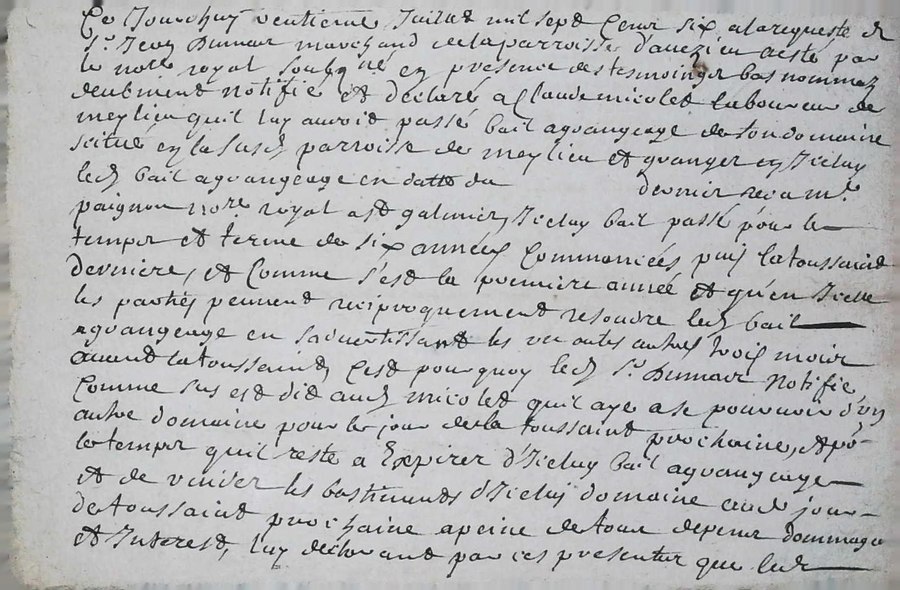 Ce Jourdhuy ventieme Juilat mil sept Cent six alarequeste de
Sr. Jean Dumair marchand delaparroisse d'avezieu acsté par
le nore royal soubzné en presence des tesmoingz bas nommez
deubment notifié et declaré a Claude micolet laboureur de
meylieu quil luy auroit passé bail agrangeage de son domaine
scitué en la susd parroisse de meylieu et granger en Iceluy
led bail agrangeage en datte du dernier recu me
paignon nore royal a st galmier, Iceluy bail passé pour le
temps et terme de six années Commancées puis latoussainct
derniere, et Comme s'est la premiere année et qu'en Icelle
les parties peuvent reciproquement resoudre led bail
agrangeage en sadvertissant les uns autres trois mois
avant latoussainct, C'est pourquoy led Sr. Dumair notifie
Comme sus est dict aud micolet quil aye a se pourvoir d'un
autre domaine pour le jour dela toussainct prochaine, et po-
le temps quil reste a Expirer d'Iceluy bail agrangeage
et de vuider les bastiments d'Iceluy domaine aud jour
detoussainct prochaine apeine detous depens dommages
et Interest, luy declarant par ces presentes que led